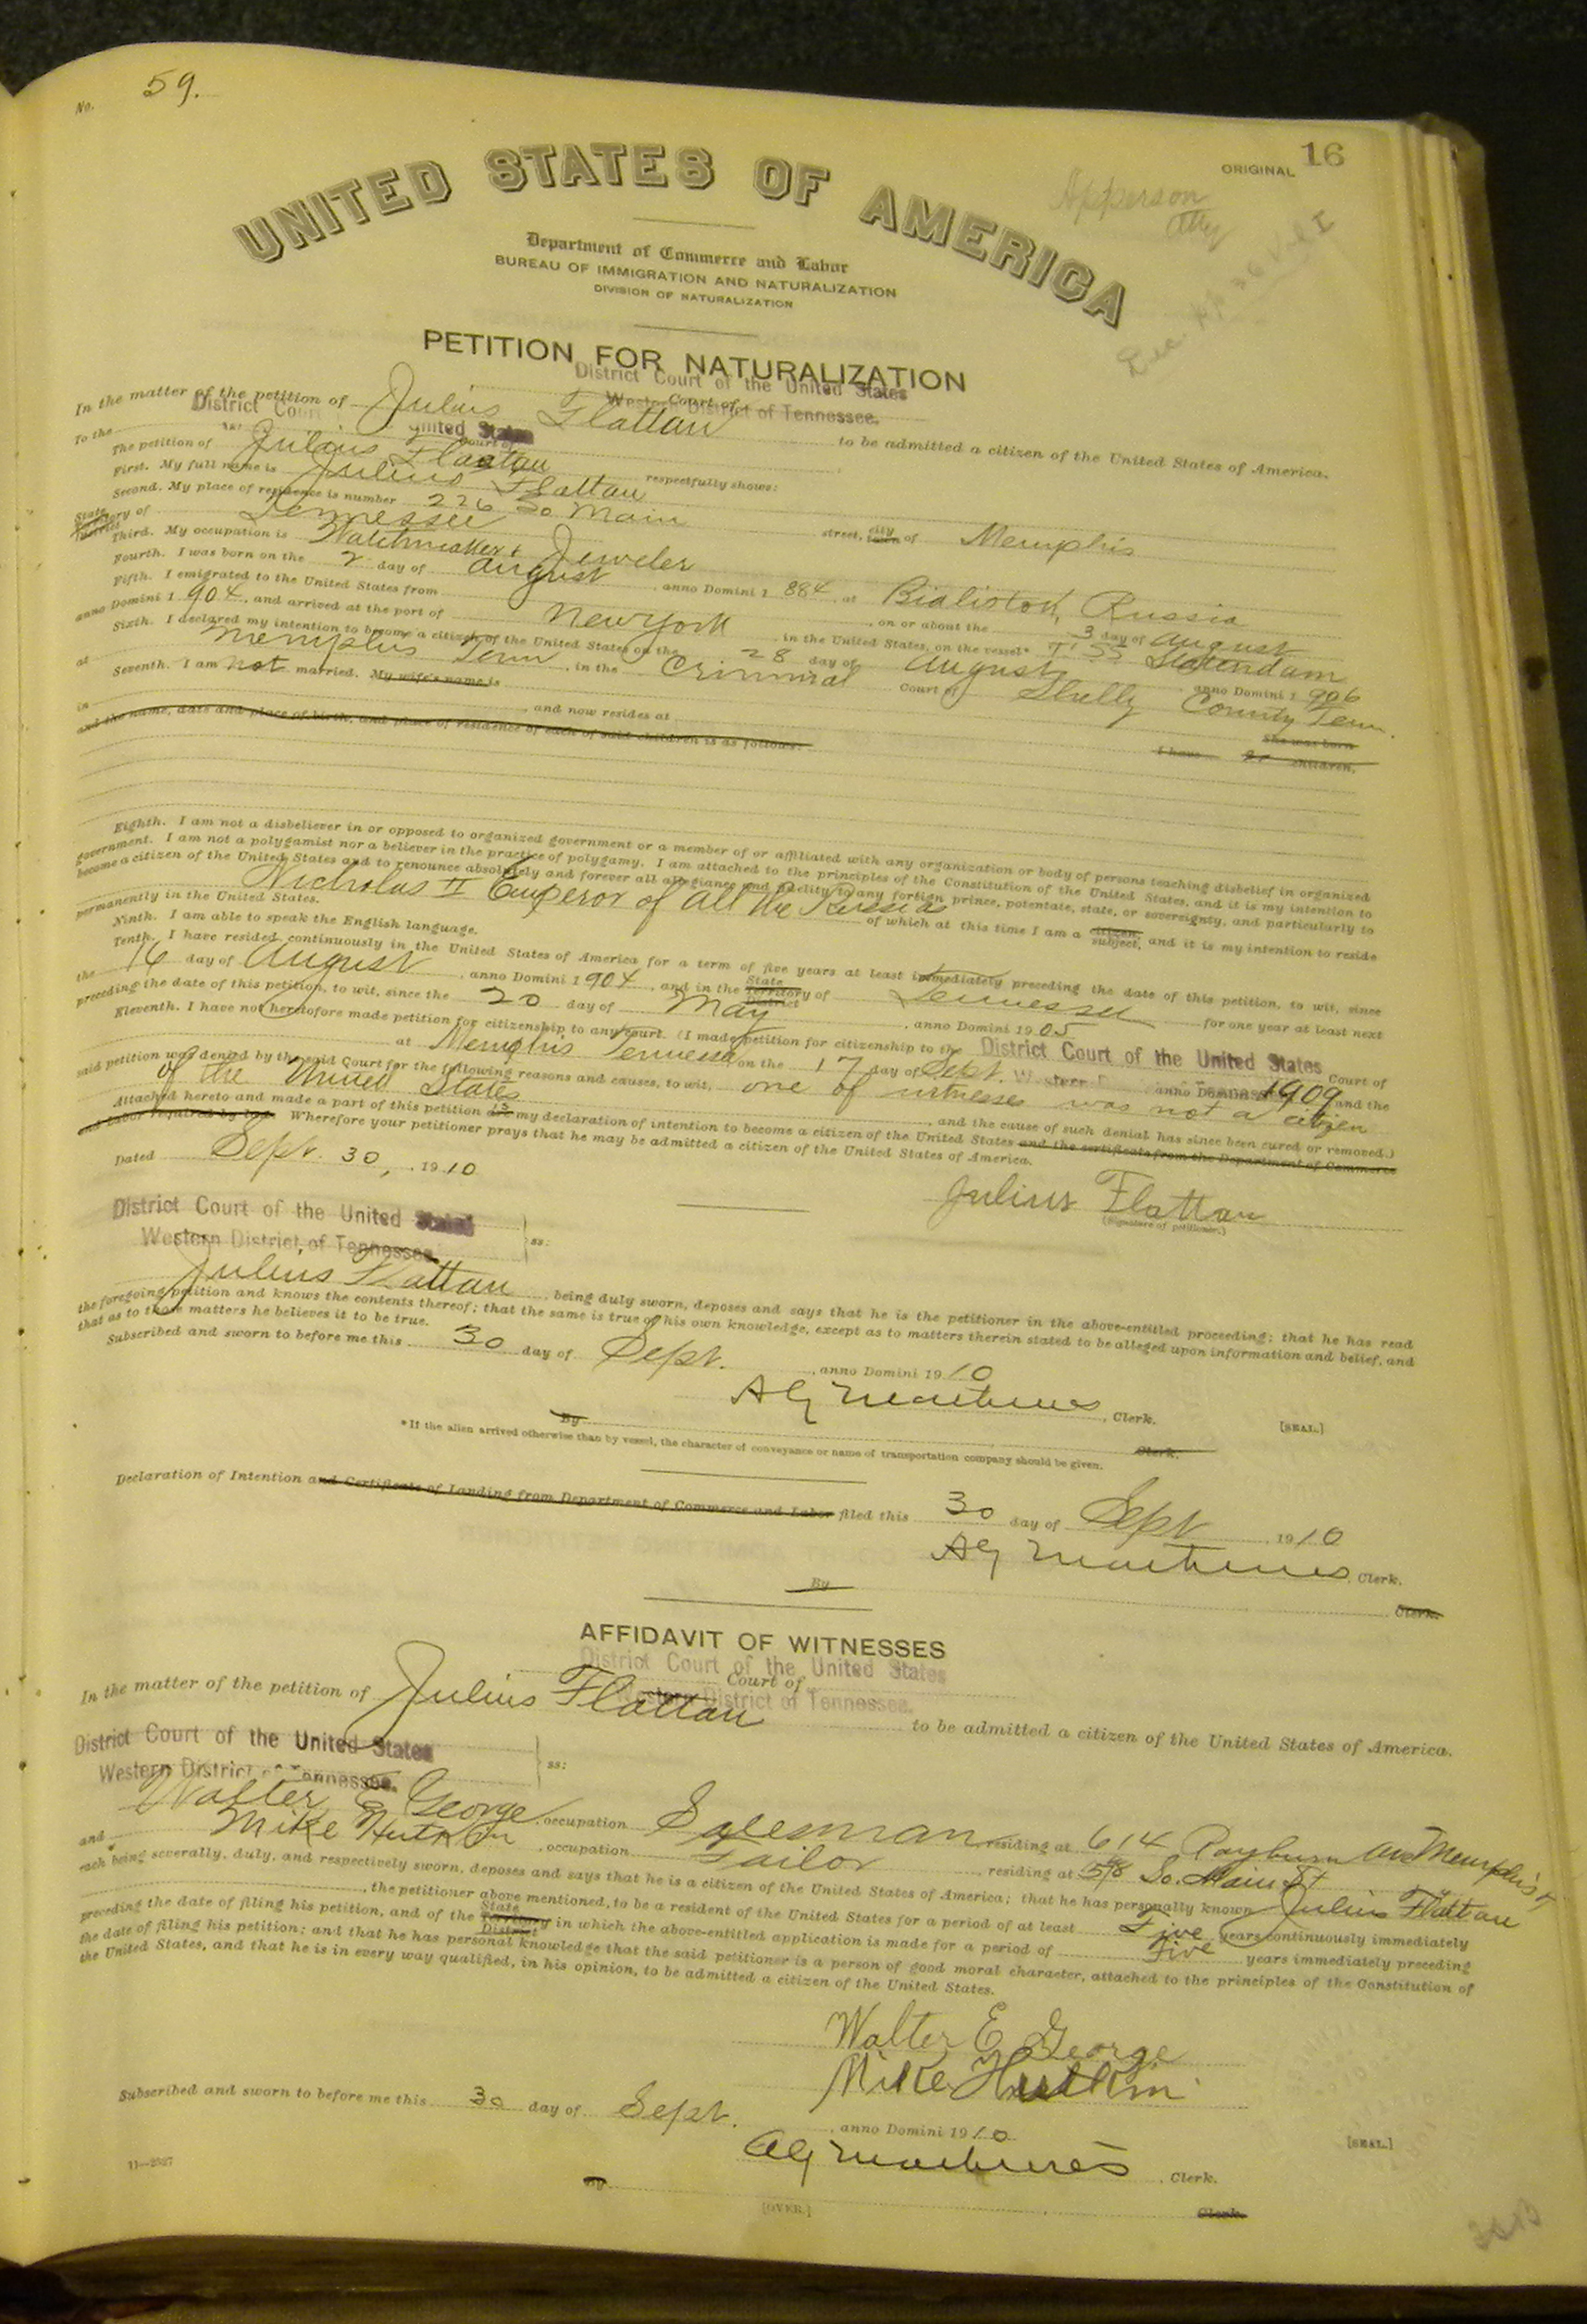 No. 59.
ORIGINAL 16
Apperson
Atty
UNITED STATES OF AMERICA
Department of Commerce and Labor
BUREAU OF IMMIGRATION AND NATURALIZATION
DIVISION OF NATURALIZATION
PETITION FOR NATURALIZATION
District Court of the United States
Court of
Western District of Tennessee.
In the matter of the petition of Julius Flattau to be admitted a citizen of the United States of America.
To the District Court United States Court of
The petition of Julius Flattau respectfully shows:
First. My full name is Julius Flattau
Second. My place of residence is number 226 So Main street, city of Memphis
State Territory District of Tennessee
Third. My occupation is Watchmaker & Jeweler
Fourth. I was born on the 2 day of August, anno Domini 1 884, at Bialistok, Russia
Fifth. I emigrated to the United States from , on or about the 3 day of August
anno Domini 1 904, and arrived at the port of New York, in the United States, on the vessel* Statendam
Sixth. I declared my intention to become a citizen of the United States on the 28 day of August, anno Domini 1 906
at Memphis Tenn, in the Criminal Court of Shelby County Tenn.
Seventh. I am not married. My wife's name is She was born
in , and now resides at I have children,
and the name, date and place of birth, and place of residence of each of said children is as follows:
Eighth. I am not a disbeliever in or opposed to organized government or a member of or affiliated with any organization or body of persons teaching disbelief in organized
government. I am not a polygamist nor a believer in the practice of polygamy. I am attached to the principles of the Constitution of the United States, and it is my intention to
become a citizen of the United States and to renounce absolutely and forever all allegiance and fidelity to any foreign prince, potentate, state, or sovereignty, and particularly to
Nicholas II Emperor of all the Russias of which at this time I am a citizen, subject, and it is my intention to reside
permanently in the United States.
Ninth. I am able to speak the English language.
Tenth. I have resided continuously in the United States of America for a term of five years at least immediately preceding the date of this petition, to wit, since
the 16 day of August, anno Domini 1 904, and in the State Territory District of Tennessee for one year at least next
preceding the date of this petition, to wit, since the 20 day of May, anno Domini 19 05
Eleventh. I have not heretofore made petition for citizenship to any court. (I made petition for citizenship to the District Court of the United States Court of
at Memphis Tennessee on the 17 day of Sept. anno Domini 1909 and the
said petition was denied by the said Court for the following reasons and causes, to wit, one of witnesses was not a citizen
of the United States, and the cause of such denial has since been cured or removed.)
Attached hereto and made a part of this petition is my declaration of intention to become a citizen of the United States and the certificate from the Department of Commerce
and Labor required by law. Wherefore your petitioner prays that he may be admitted a citizen of the United States of America.
Dated Sept. 30, 19 10
Julius Flattau
(Signature of petitioner.)
District Court of the United States
Western District of Tennessee. ss:
Julius Flattau, being duly sworn, deposes and says that he is the petitioner in the above-entitled proceeding; that he has read
the foregoing petition and knows the contents thereof; that the same is true of his own knowledge, except as to matters therein stated to be alleged upon information and belief, and
that as to those matters he believes it to be true.
Subscribed and sworn to before me this 30 day of Sept., anno Domini 19 10
, Clerk. [SEAL.]
By Clerk.
*If the alien arrived otherwise than by vessel, the character of conveyance or name of transportation company should be given.
Declaration of Intention and Certificate of Landing from Department of Commerce and Labor filed this 30 day of Sept 19 10
, Clerk.
By Clerk.
AFFIDAVIT OF WITNESSES
District Court of the United States
Court of
Western District of Tennessee.
In the matter of the petition of Julius Flattau to be admitted a citizen of the United States of America.
District Court of the United States
Western District of Tennessee. ss:
Walter E George, occupation Salesman residing at 614 Rayburn Ave Memphis
and Mike Hutkin, occupation Tailor, residing at So. Main St
each being severally, duly, and respectively sworn, deposes and says that he is a citizen of the United States of America; that he has personally known Julius Flattau
, the petitioner above mentioned, to be a resident of the United States for a period of at least Five years continuously immediately
preceding the date of filing his petition, and of the State Territory District in which the above-entitled application is made for a period of Five years immediately preceding
the date of filing his petition; and that he has personal knowledge that the said petitioner is a person of good moral character, attached to the principles of the Constitution of
the United States, and that he is in every way qualified, in his opinion, to be admitted a citizen of the United States.
Walter E George
Mike Hutkin
Subscribed and sworn to before me this 30 day of Sept., anno Domini 19 10
, Clerk. [SEAL.]
11—2527
By Clerk.
[OVER.]